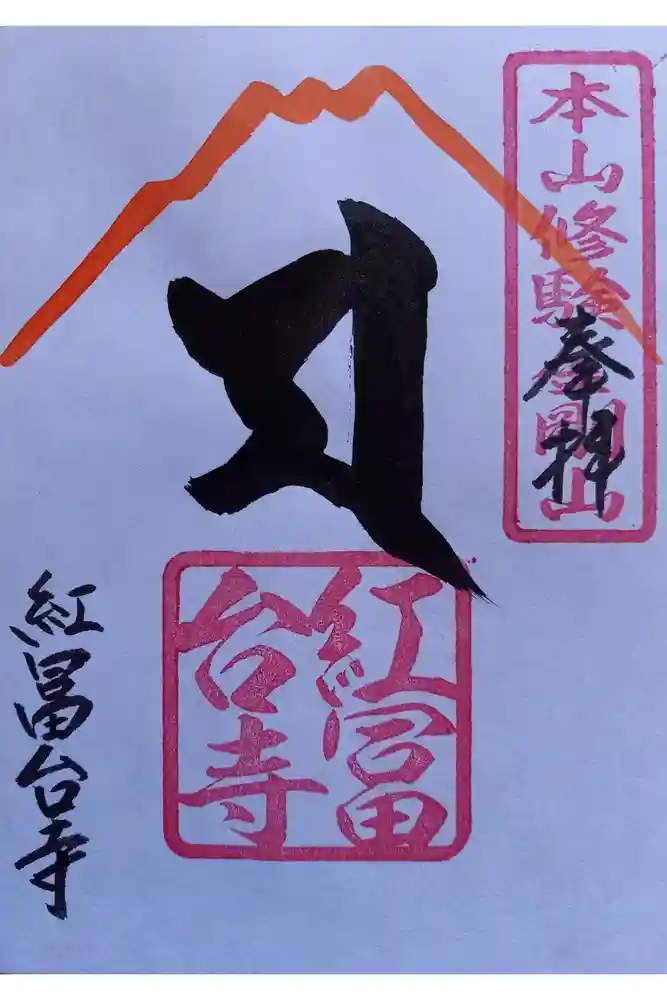 本山修験金剛山
奉拝
𑖀
紅冨
台寺
紅冨台寺